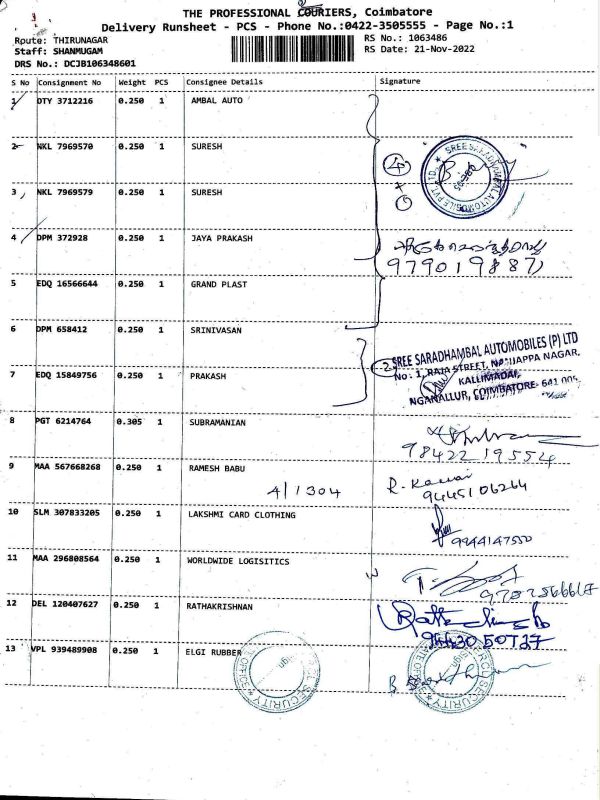 THE PROFESSIONAL COURIERS, Coimbatore
Delivery Runsheet - PCS - Phone No.:0422-3505555 - Page No.:1
Route: THIRUNAGAR
Staff: SHANMUGAM
DRS No.: DCJB106348601
RS No.: 1063486
RS Date: 21-Nov-2022
S No Consignment No Weight PCS Consignee Details Signature
1 DTY 3712216 0.250 1 AMBAL AUTO
2 NKL 7969570 0.250 1 SURESH
3 NKL 7969579 0.250 1 SURESH
4 DPM 372928 0.250 1 JAYA PRAKASH
9790198871
5 EDQ 16566644 0.250 1 GRAND PLAST
6 DPM 658412 0.250 1 SRINIVASAN
SREE SARADHAMBAL AUTOMOBILES (P) LTD
No: 1, RAJA STREET, NANJAPPA NAGAR,
KALLIMADAI,
COIMBATORE- 641 005
7 EDQ 15849756 0.250 1 PRAKASH
8 PGT 6214764 0.305 1 SUBRAMANIAN
98422 19554
9 MAA 567668268 0.250 1 RAMESH BABU
4/1304
9445106264
10 SLM 307833205 0.250 1 LAKSHMI CARD CLOTHING
9944147550
11 MAA 296808564 0.250 1 WORLDWIDE LOGISITICS
12 DEL 120407627 0.250 1 RATHAKRISHNAN
13 VPL 939489908 0.250 1 ELGI RUBBER